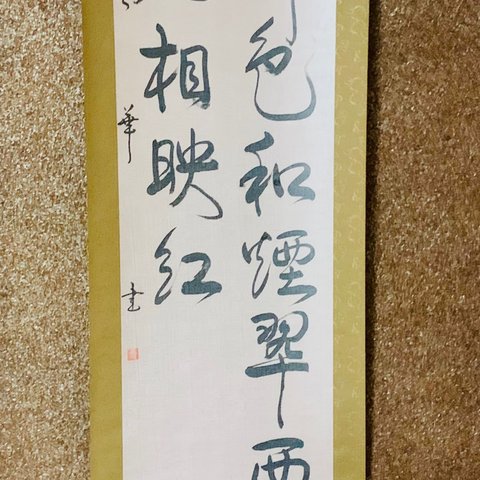 色和煙翠
相映紅
華書